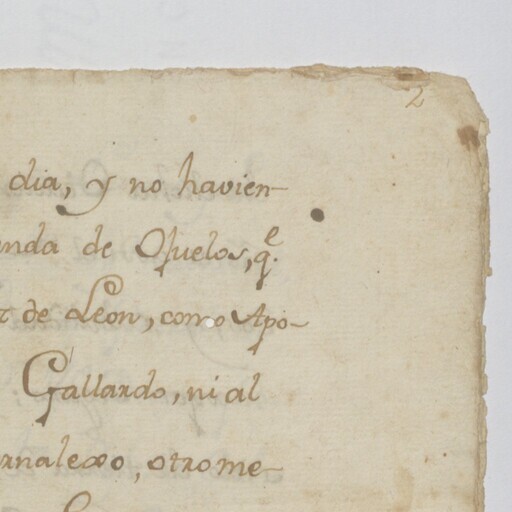 2
dia, y no havien-
nda de Oſuelos, q.e
de Leon, como Apo-
Gallardo, ni al
rnalexo, otro me-